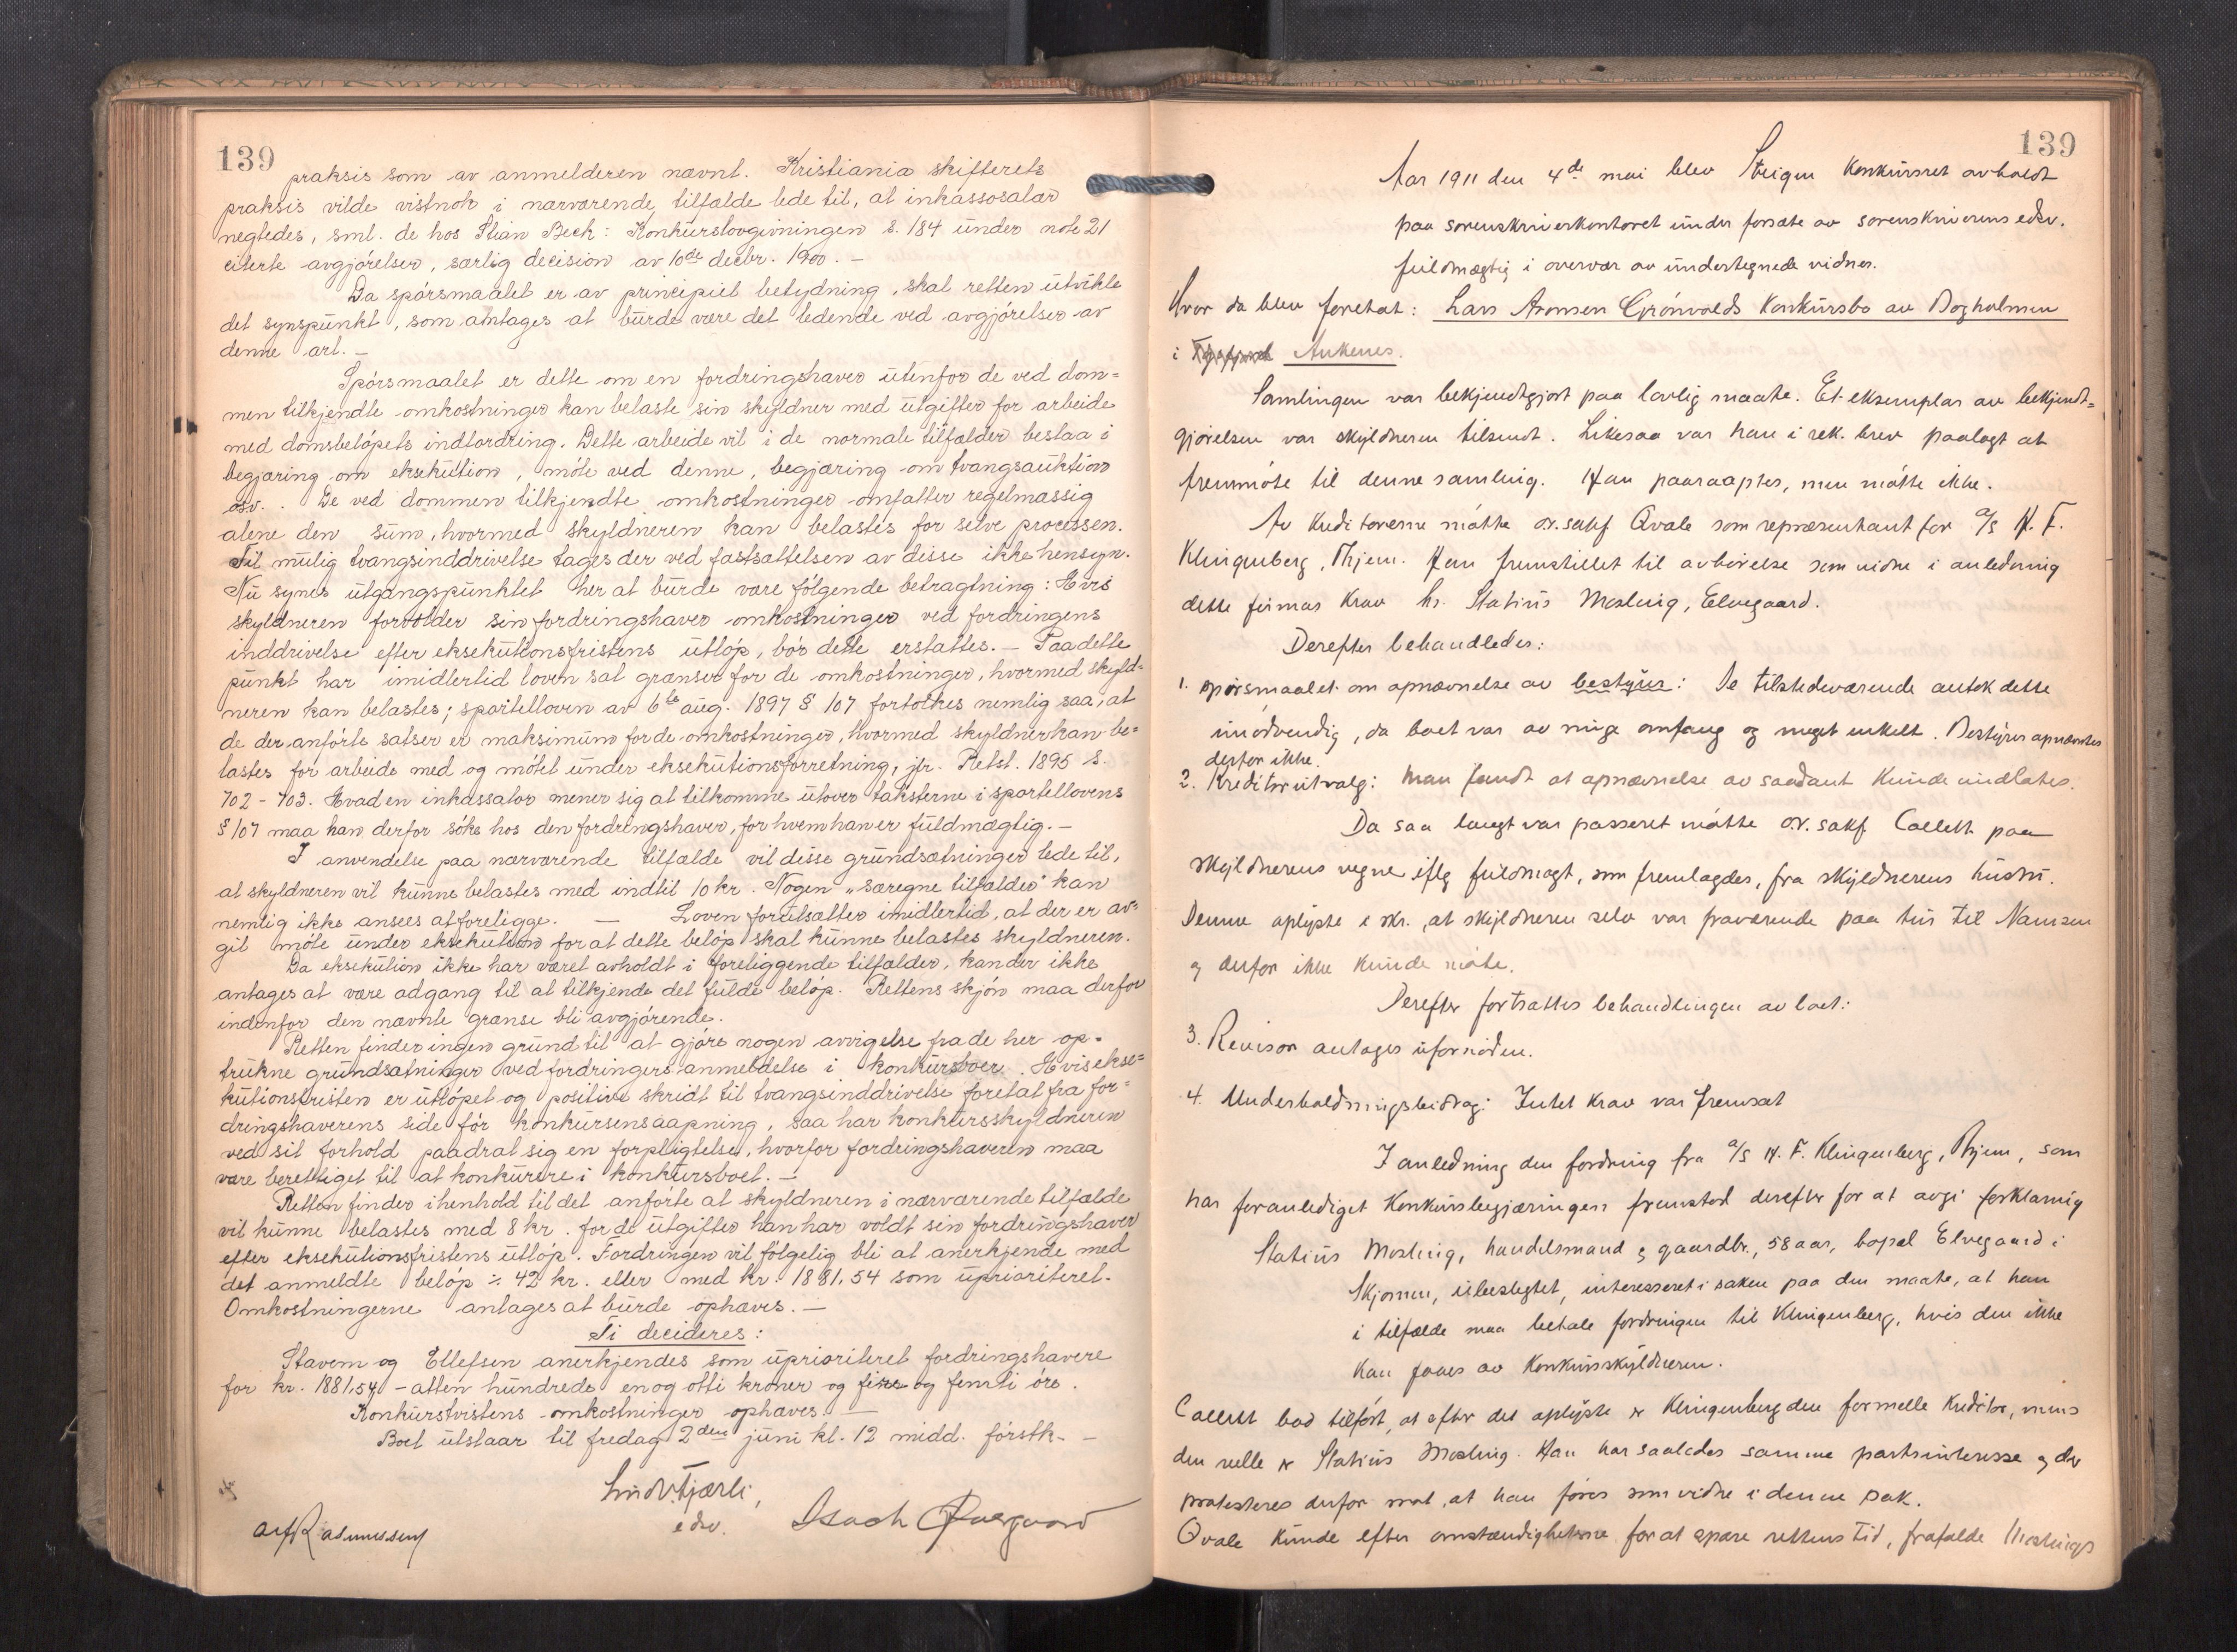 139
praksis som av anmelderen nævnt. Kristiania skifterets
praksis vilde vistnok i nærværende tilfælde lede til, at inkassosalær
negtedes, sml. de hos Stian Bech: Konkurslovgivningen s. 184 under note 21
citerte avgjørelser, særlig decision av 10de decbr. 1900. –
Da spørsmaalet er av principiel betydning, skal retten utvikle
det synspunkt, som antages at burde være det ledende ved avgjørelser av
denne art. –
Spørsmaalet er dette om en fordringshaver utenfor de ved dom=
men tilkjendte omkostninger kan belaste sin skyldner med utgifter for arbeide
med domsbeløpets indfordring. Dette arbeide vil i de normale tilfælder bestaa i
begjæring om eksekution, møte ved denne, begjæring om tvangsauktion
osv. . De ved dommen tilkjendte omkostninger omfatter regelmæssig
alene den sum, hvormed skyldneren kan belastes for selve processen.
Til mulig tvangsinddrivelse tages der ved fastsættelsen av disse ikke hensyn.
Nu synes utgangspunktet her at burde være følgende betragtning: Hvis
skyldneren forvolder sin fordringshaver omkostninger ved fordringens
inddrivelse efter eksekutionsfristens utløp, bør dette erstattes. – Paa dette
punkt har imidlertid loven sat grænser for de omkostninger, hvormed skyld=
neren kan belastes; sportelloven av 6te aug. 1897 § 107 fortolkes nemlig saa, at
de der anførte satser er maksimum for de omkostninger, hvormed skyldner kan be=
lastes for arbeide med og møtet under eksekutionsforretning, jfr. Retst. 1895 s.
702 – 703. Hvad en inkassator mener sig at tilkomme utover taksterne i sportellovens
§ 107 maa han derfor søke hos den fordringshaver, for hvem han er fuldmægtig. –
I anvendelse paa nærværende tilfælde vil disse grundsætninger lede til,
at skyldneren vil kunne belastes med indtil 10 kr. Nogen „særegne tilfælder" kan
nemlig ikke ansees at foreligge. – Loven forutsætter imidlertid, at der er av=
git møte under eksekution for at dette beløp skal kunne belastes skyldneren.
Da eksekution ikke har været avholdt i foreliggende tilfælder, kan der ikke
antages at være adgang til at tilkjende det fulde beløp. Rettens skjøn maa derfor
indenfor den nævnte grænse bli avgjørende.
Retten finder ingen grund til at gjøre nogen avvigelse fra de her op=
trukne grundsætninger ved fordringers anmeldelse i konkursboer. Hvis ekse=
kutionsfristen er utløpet og positive skridt til tvangsinddrivelse foretat fra for=
dringshaverens side før konkursens aapning, saa har konkursskyldneren
ved sit forhold paadrat sig en forpligtelse, hvorfor fordringshaveren maa
være berettiget til at konkurrere i konkursboet. –
Retten finder i henhold til det anførte at skyldneren i nærværende tilfælde
vil kunne belastes med 8 kr. for de utgifter han har voldt sin fordringshaver
efter eksekutionsfristens utløp. Fordringen vil følgelig bli at anerkjende med
det anmeldte beløp ÷ 42 kr. eller med kr. 1881,54 som uprioriteret.
Omkostningerne antages at burde ophæves. –
Ti decideres:
Stavem og Ellefsen anerkjendes som uprioriteret fordringshavere
for kr. 1881,54 – atten hundrede en og otti kroner og fire og femti øre.
Konkurstvistens omkostninger ophæves. –
Boet utstaar til fredag 2den juni kl. 12 midd. førstk. –
edsv.
Alf Rasmussen
139
Aar 1911 den 4de mai blev Steigen konkursret avholdt
paa sorenskriverkontoret under forsæte av sorenskriverens edsv.
fuldmægtig i overvær av undertegnede vidner.
Hvor da blev foretat: Lars Aronsen Grønvolds konkursbo av Dogholmen
i Ankenes.
Samlingen var bekjendtgjort paa lovlig maate. Et eksemplar av bekjendt=
gjørelsen var skyldneren tilsendt. Likesaa var han i rek. brev paalagt at
fremmøte til denne samling. Han paaraaptes, men møtte ikke.
Av kreditorerne møtte o.r.sakf Qvale som repræsentant for a/s H. F.
Klingenberg, Thjem. Han fremstillet til avhørelse som vidne i anledning
dette firmas krav hr. Statius Mosling, Elvegaard.
Derefter behandledes:
1. spørsmaalet om opnævnelse av bestyrer: De tilstedeværende antok dette
unødvendig, da boet var av ringe omfang og meget enkelt. Bestyrer opnævntes
derfor ikke.
2. Kreditorutvalg: Man fandt at opnævnelse av saadant kunde undlates.
Da saa langt var passeret møtte o.r.sakf. Collett paa
skyldnerens vegne iflg fuldmagt, som fremlagdes, fra skyldnerens hustru.
Denne oplyste i skr., at skyldneren selv var fraværende paa tur til Namsen
og derfor ikke kunde møte.
Derefter fortsattes behandlingen av boet:
3. Revisor antages ufornøden.
4. Underholdningsbidrag: Intet krav var fremsat
I anledning den fordring fra a/s H. F. Klingenberg, Thjem, som
har foranlediget konkursbegjæringen fremstod derefter for at avgi forklaring
Statius Mosling, handelsmand og gaardbr., 58 aar, bopæl Elvegaard i
Skjomen, ubeslegtet, interesseret i saken paa den maate, at han
i tilfælde maa betale fordringen til Klingenberg, hvis den ikke
kan faaes av konkursskyldneren.
Collett bad tilført, at efter det oplyste er Klingenberg den formelle kreditor, mens
den reelle er Statius Mosling. Han har saaledes samme partsinteresse og der
protesteres derfor mot, at han føres som vidne i denne sak.
Qvale kunde efter omstændigheterne for at spare rettens tid, frafalde Moslings